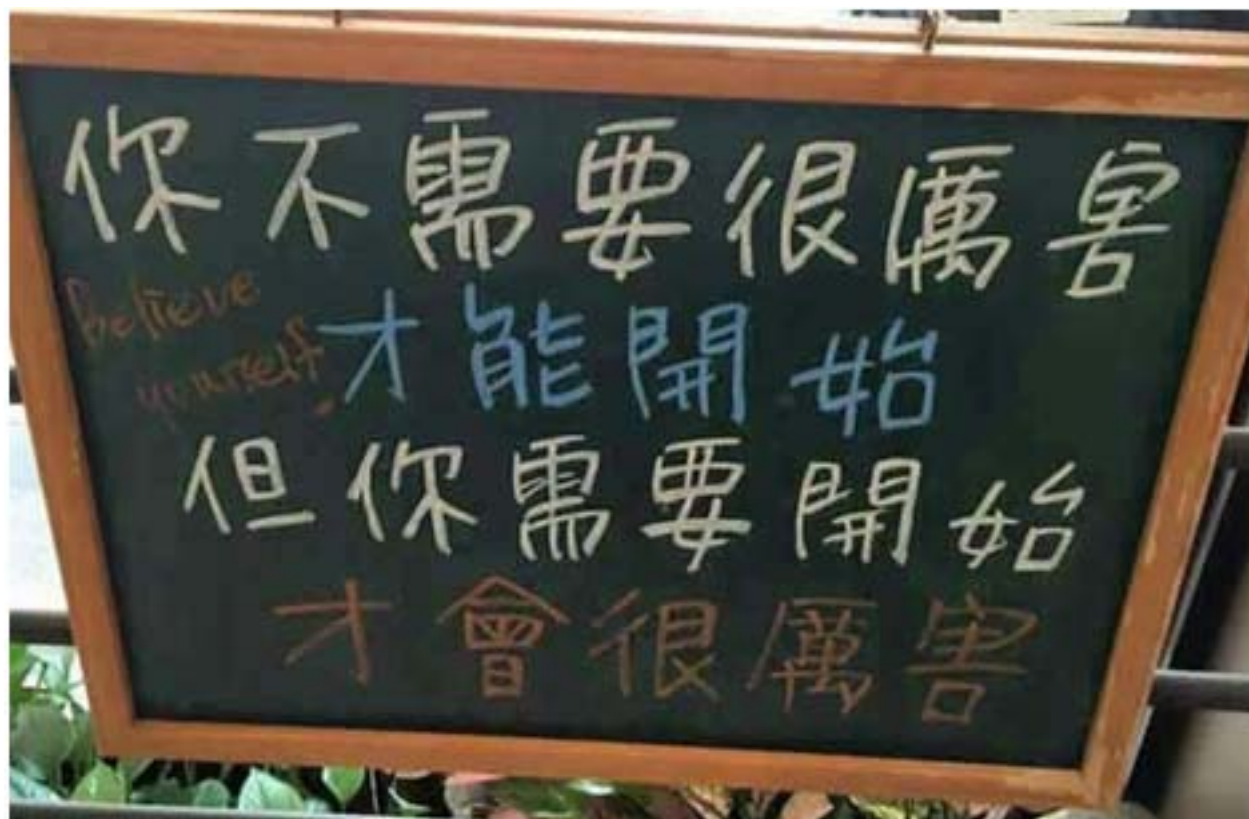 你不需要很厲害
Believe
yourself.
才能開始
但你需要開始
才會很厲害